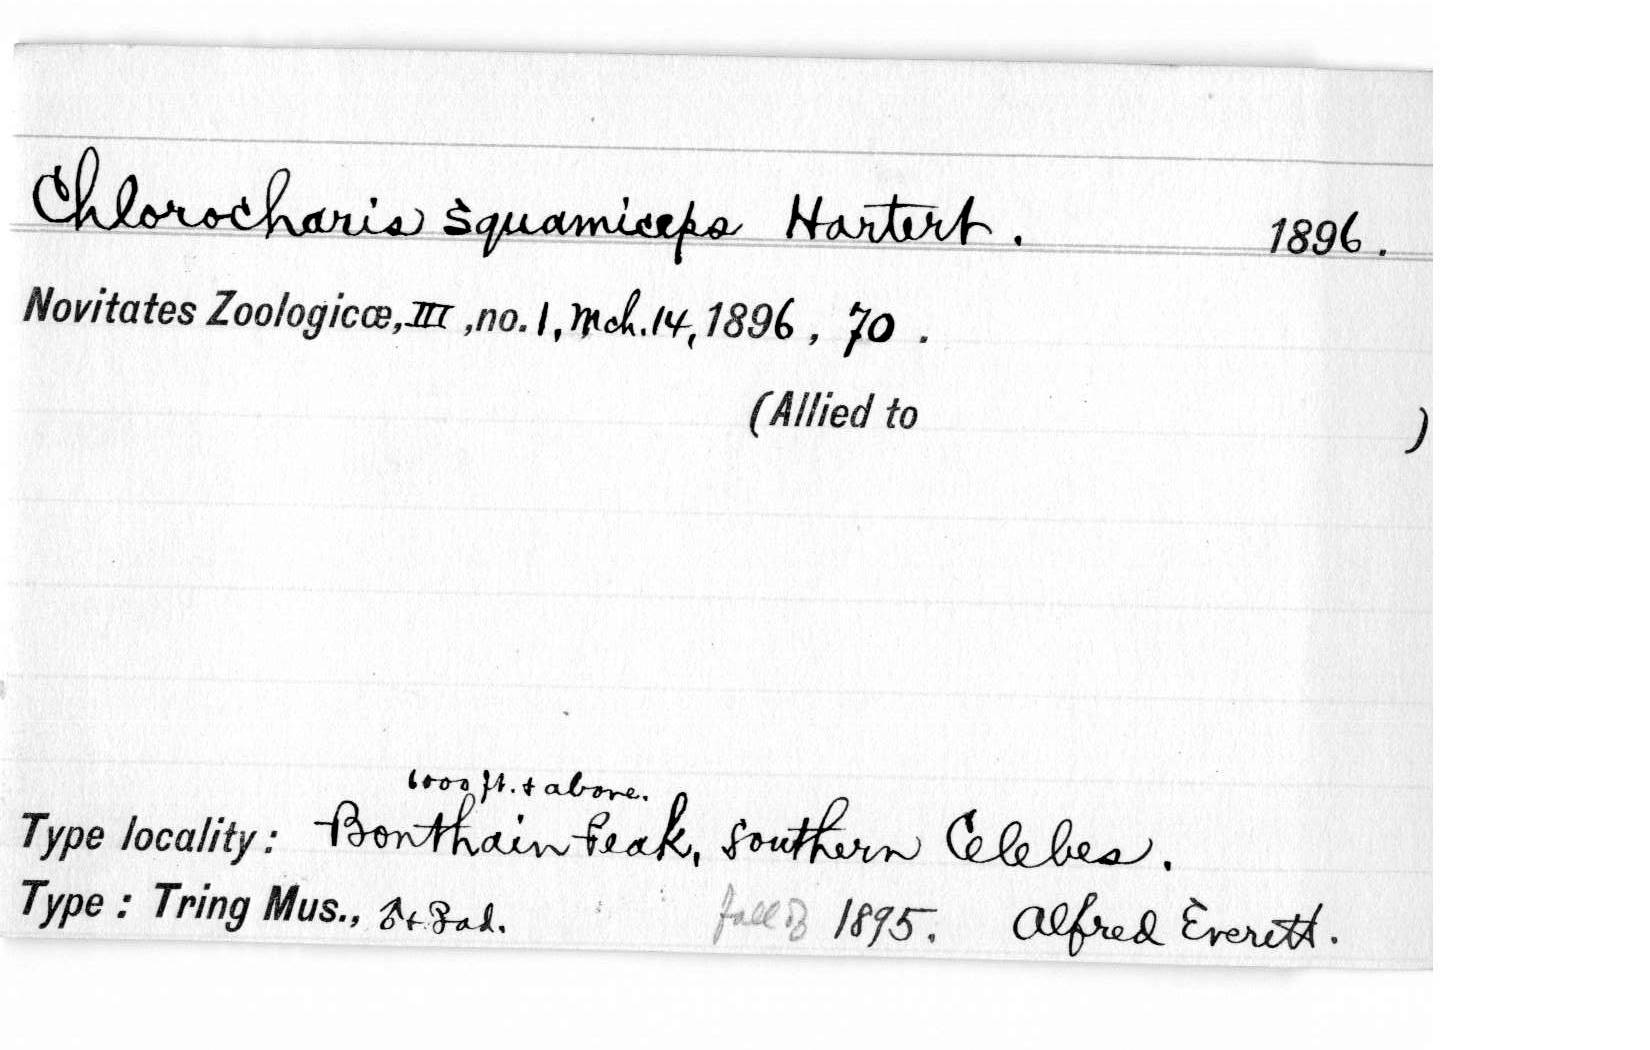 Chlorocharis squamiceps Hartert. 1896.
Novitates Zoologicæ, III, no. 1, Mch. 14, 1896, 70.
(Allied to )
6000 ft. & above.
Type locality: Bonthain Peak, southern Celebes.
Type: Tring Mus., ad. fall of 1895. Alfred Everett.